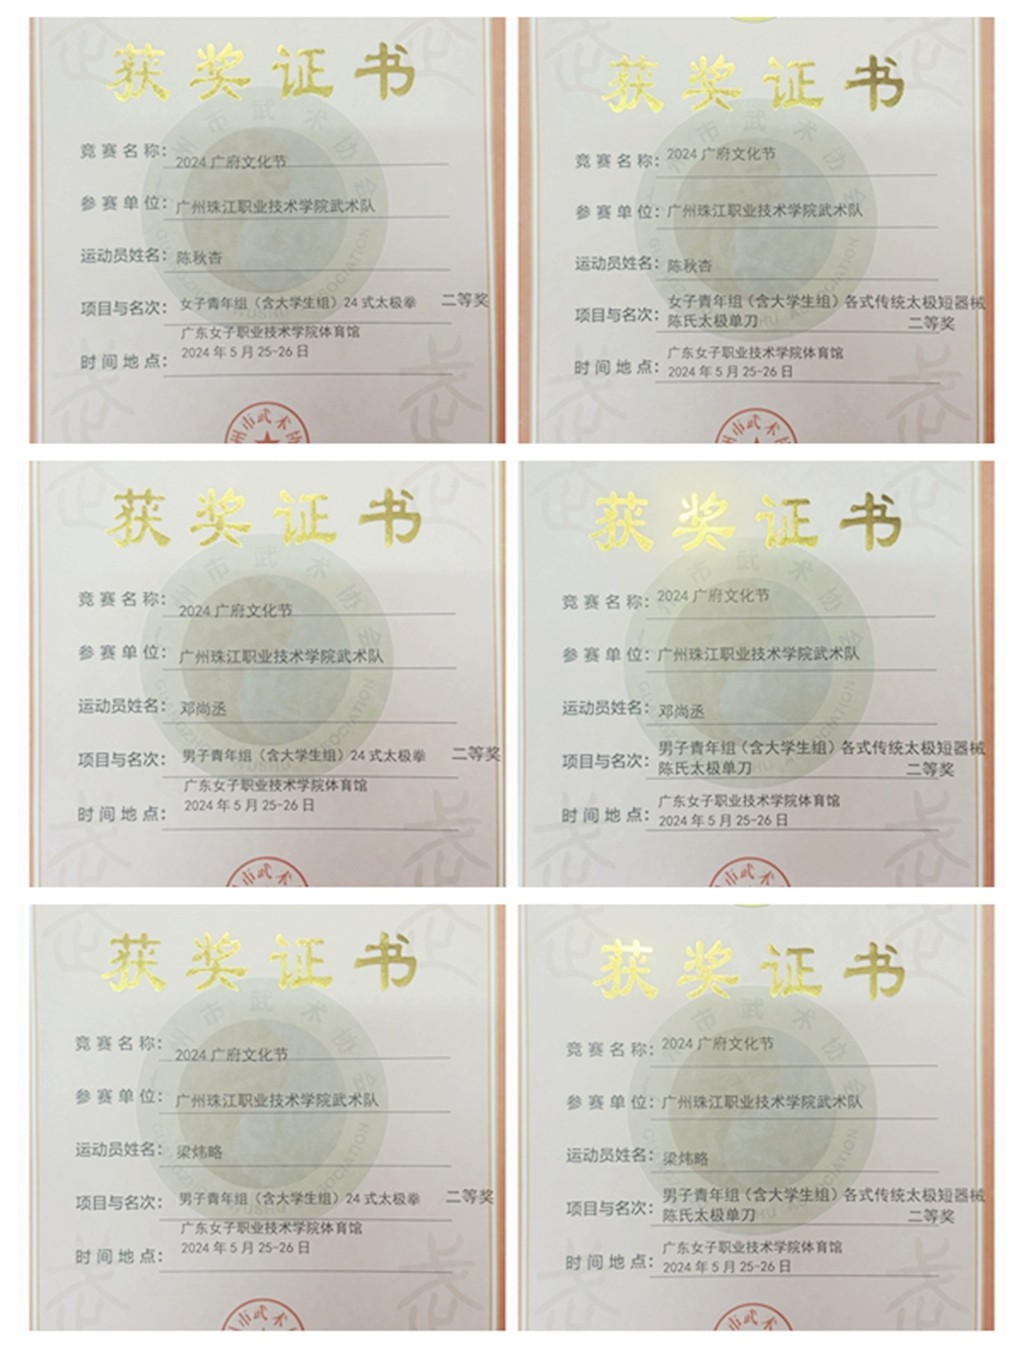 获奖证书
竞赛名称：2024 广府文化节
参赛单位：广州珠江职业技术学院武术队
运动员姓名：陈秋杏
项目与名次：女子青年组（含大学生组）24 式太极拳 二等奖
广东女子职业技术学院体育馆
时间地点：2024 年 5 月 25-26 日
州市武术协
获奖证书
竞赛名称：2024 广府文化节
参赛单位：广州珠江职业技术学院武术队
运动员姓名：陈秋杏
项目与名次：女子青年组（含大学生组）各式传统太极短器械
陈氏太极单刀 二等奖
时间地点：广东女子职业技术学院体育馆
2024 年 5 月 25-26 日
州市武术协
获奖证书
竞赛名称：2024 广府文化节
参赛单位：广州珠江职业技术学院武术队
运动员姓名：邓尚丞
项目与名次：男子青年组（含大学生组）24 式太极拳 二等奖
广东女子职业技术学院体育馆
时间地点：2024 年 5 月 25-26 日
市武术
获奖证书
竞赛名称：2024 广府文化节
参赛单位：广州珠江职业技术学院武术队
运动员姓名：邓尚丞
项目与名次：男子青年组（含大学生组）各式传统太极短器械
陈氏太极单刀 二等奖
时间地点：广东女子职业技术学院体育馆
2024 年 5 月 25-26 日
市武术
获奖证书
竞赛名称：2024 广府文化节
参赛单位：广州珠江职业技术学院武术队
运动员姓名：梁炜略
项目与名次：男子青年组（含大学生组）24 式太极拳 二等奖
广东女子职业技术学院体育馆
时间地点：2024 年 5 月 25-26 日
市武术
获奖证书
竞赛名称：2024 广府文化节
参赛单位：广州珠江职业技术学院武术队
运动员姓名：梁炜略
项目与名次：男子青年组（含大学生组）各式传统太极短器械
陈氏太极单刀 二等奖
时间地点：广东女子职业技术学院体育馆
2024 年 5 月 25-26 日
市武术